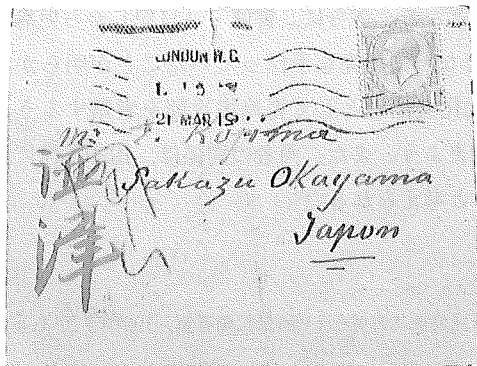 LONDON W.C.
21 MAR 19
Mr Koyama
Sakazu Okayama
Japon
酒津